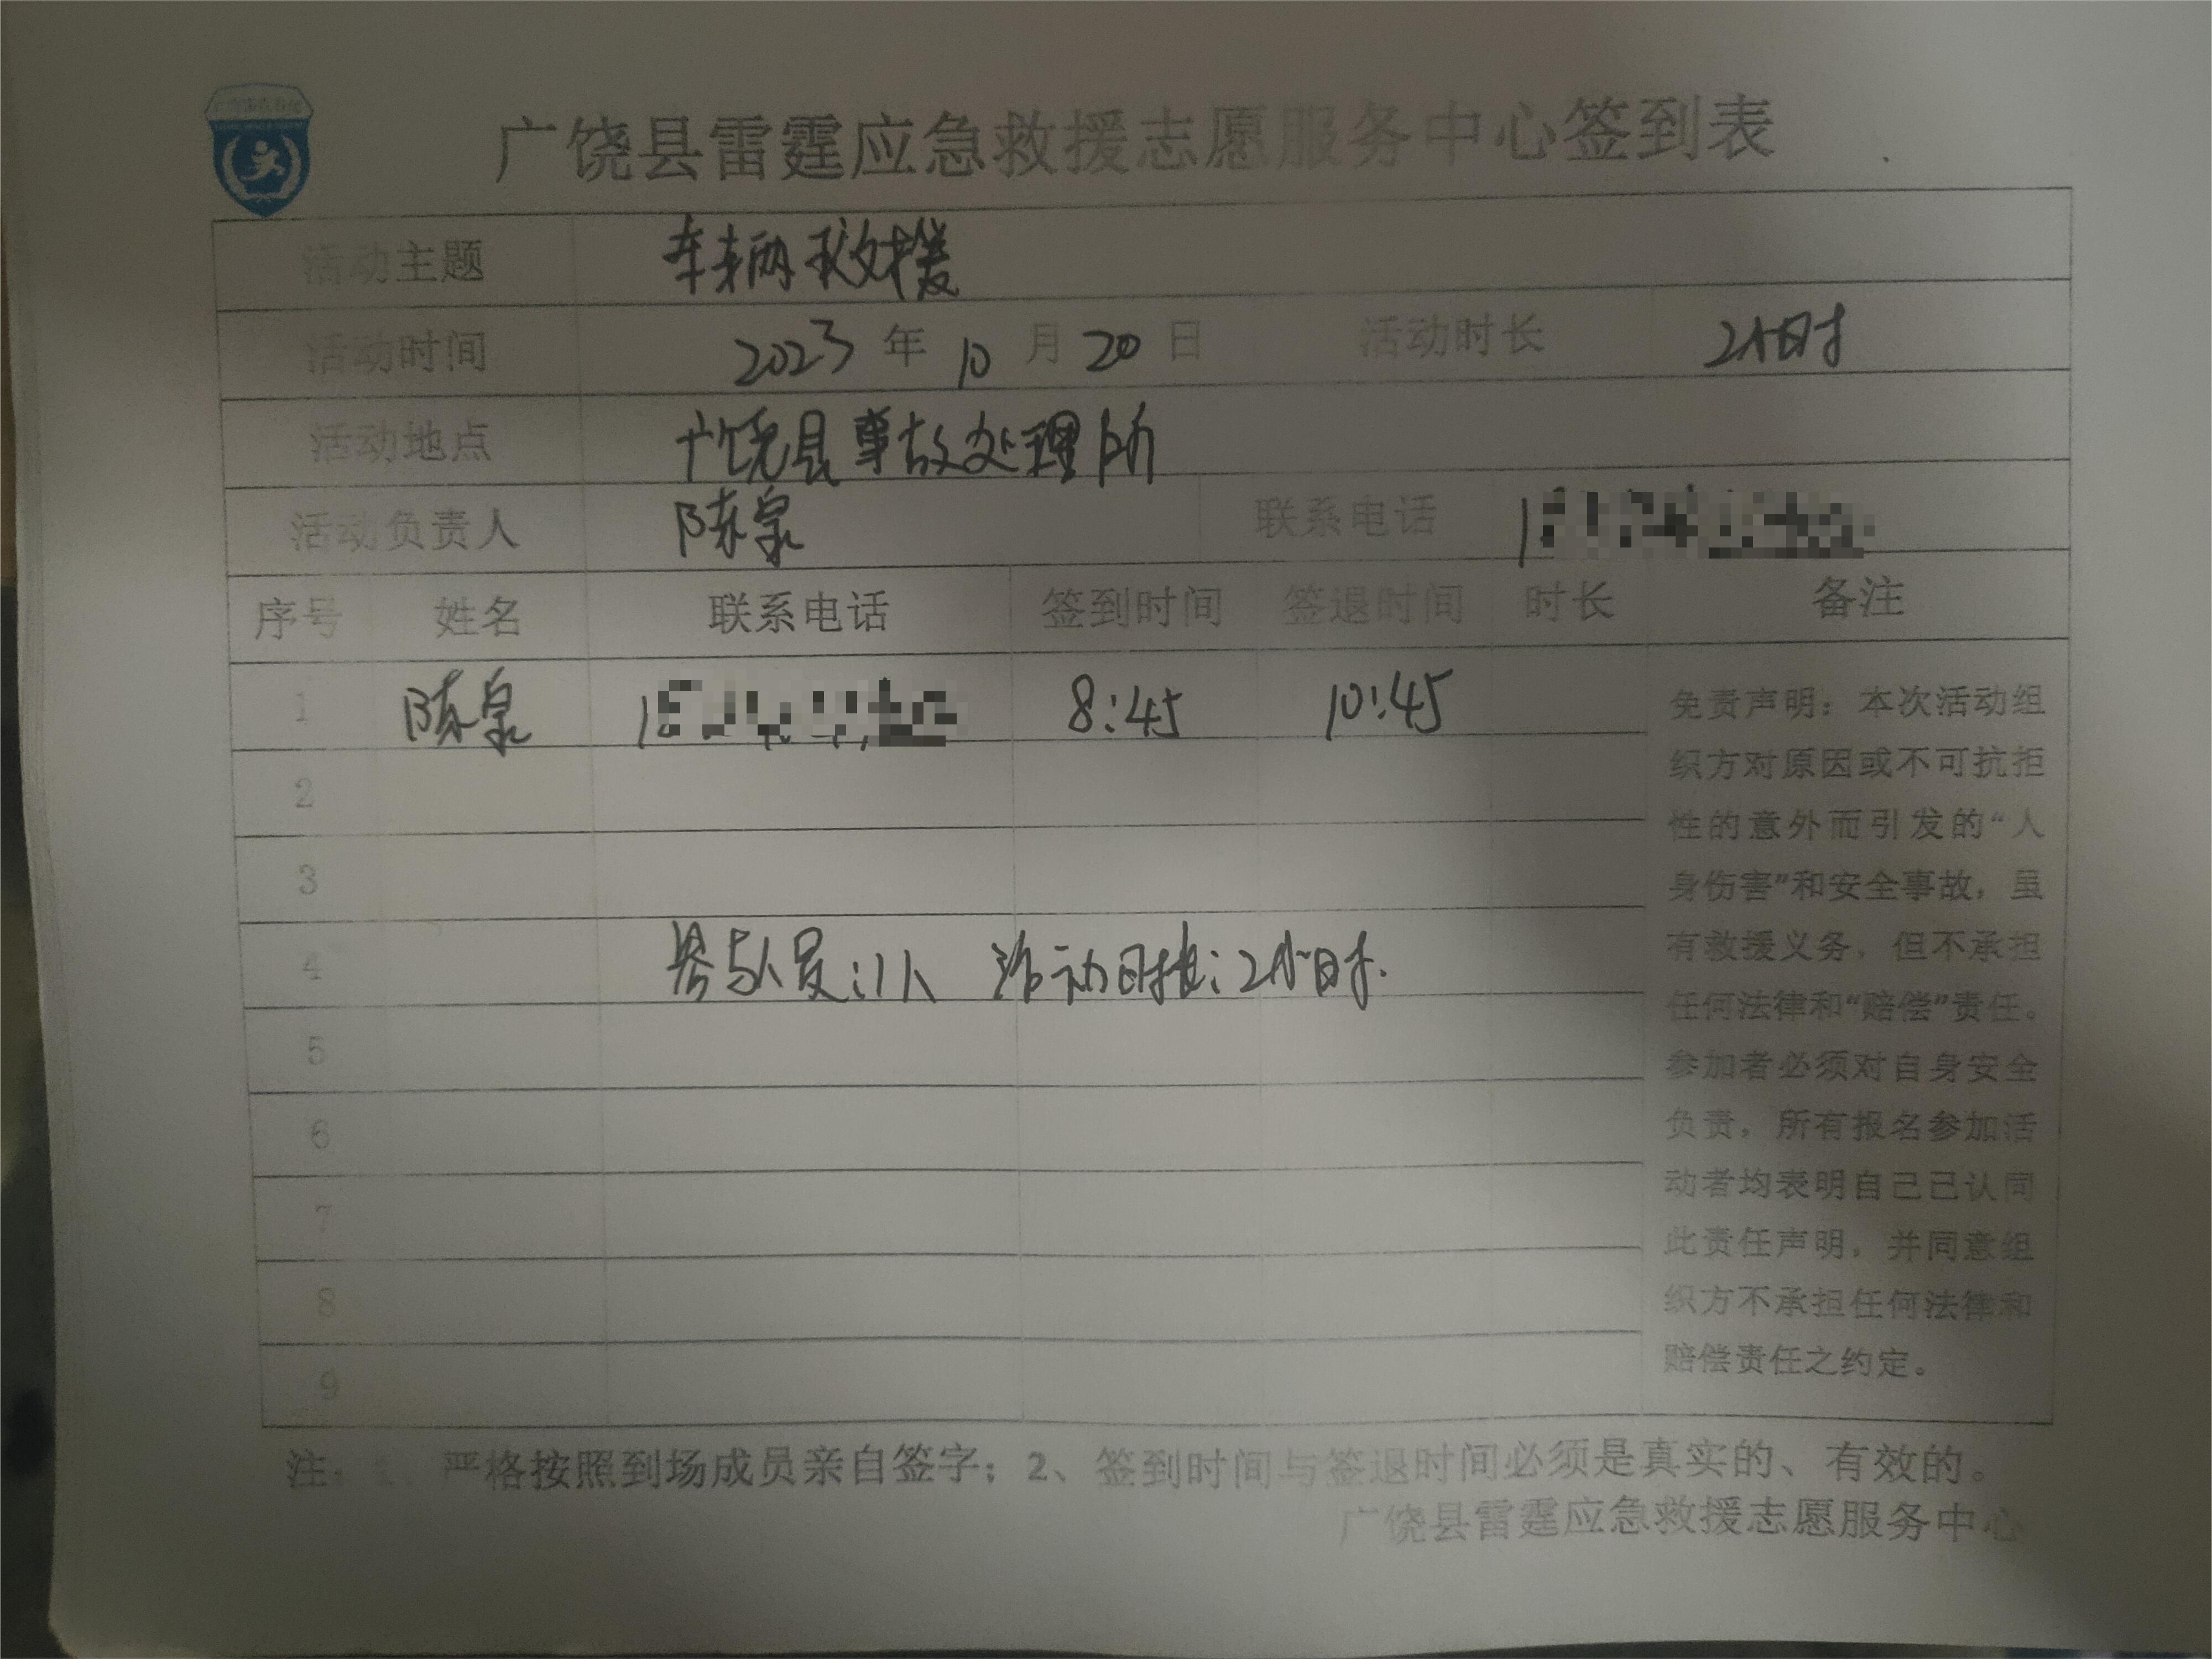 广饶县雷霆应急救援志愿服务中心签到表
活动主题 车辆救援
活动时间 2023 年 10 月 20 日 活动时长 2小时
活动地点 广饶县事故处理所
活动负责人 陈泉 联系电话
序号 姓名 联系电话 签到时间 签退时间 时长 备注
1 陈泉 8:45 10:45
2
3
4 参与人员:1人 活动时长:2小时.
5
6
7
8
9
免责声明：本次活动组
织方对原因或不可抗拒
性的意外而引发的“人
身伤害”和安全事故，虽
有救援义务，但不承担
任何法律和“赔偿”责任。
参加者必须对自身安全
负责，所有报名参加活
动者均表明自己已认同
此责任声明，并同意组
织方不承担任何法律和
赔偿责任之约定。
注：1、严格按照到场成员亲自签字；2、签到时间与签退时间必须是真实的、有效的。
广饶县雷霆应急救援志愿服务中心